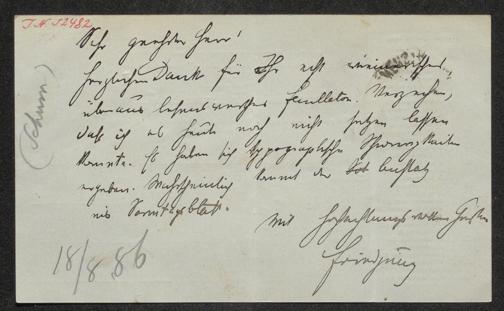 I.N. 52482
Sehr geehrter Herr!
Herzlichen Dank für Ihr echt wienerisches,
überaus lesenswerthes Feuilleton. Verzeihen,
daß ich es heute noch nicht setzen lassen
konnte. Es haben sich typographische Schwierigkeiten
ergeben. Wahrscheinlich kommt der Aufsatz
ins Sonntagsblatt.
Mit hochachtungsvollem Gruße
Friedjung
18/8 86